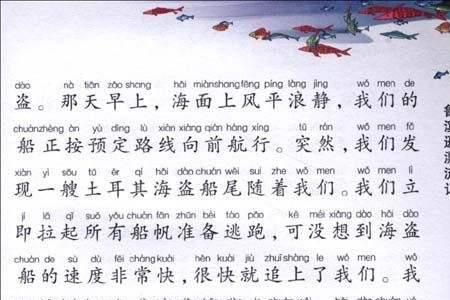 dào nà tiān zǎo shang hǎi miànshang fēng píng làng jìng wǒ men de
盗。那天早上，海面上风平浪静，我们的
chuánzhèng àn yù dìng lù xiàn xiàng qián háng xíng tū rán wǒ men fā
船正按预定路线向前航行。突然，我们发
xiàn yì sōu tǔ ěr qí hǎi dào chuán wěi suí zhe wǒ men wǒ men lì
现一艘土耳其海盗船尾随着我们。我们立
jí lā qǐ suǒ yǒu chuán fān zhǔn bèi táo pǎo kě méi xiǎng dào hǎi dào
即拉起所有船帆准备逃跑，可没想到海盗
chuán de sù dù fēi cháng kuài hěn kuài jiù zhuī shàng le wǒ men wǒ
船的速度非常快，很快就追上了我们。我
鲁滨逊漂流记